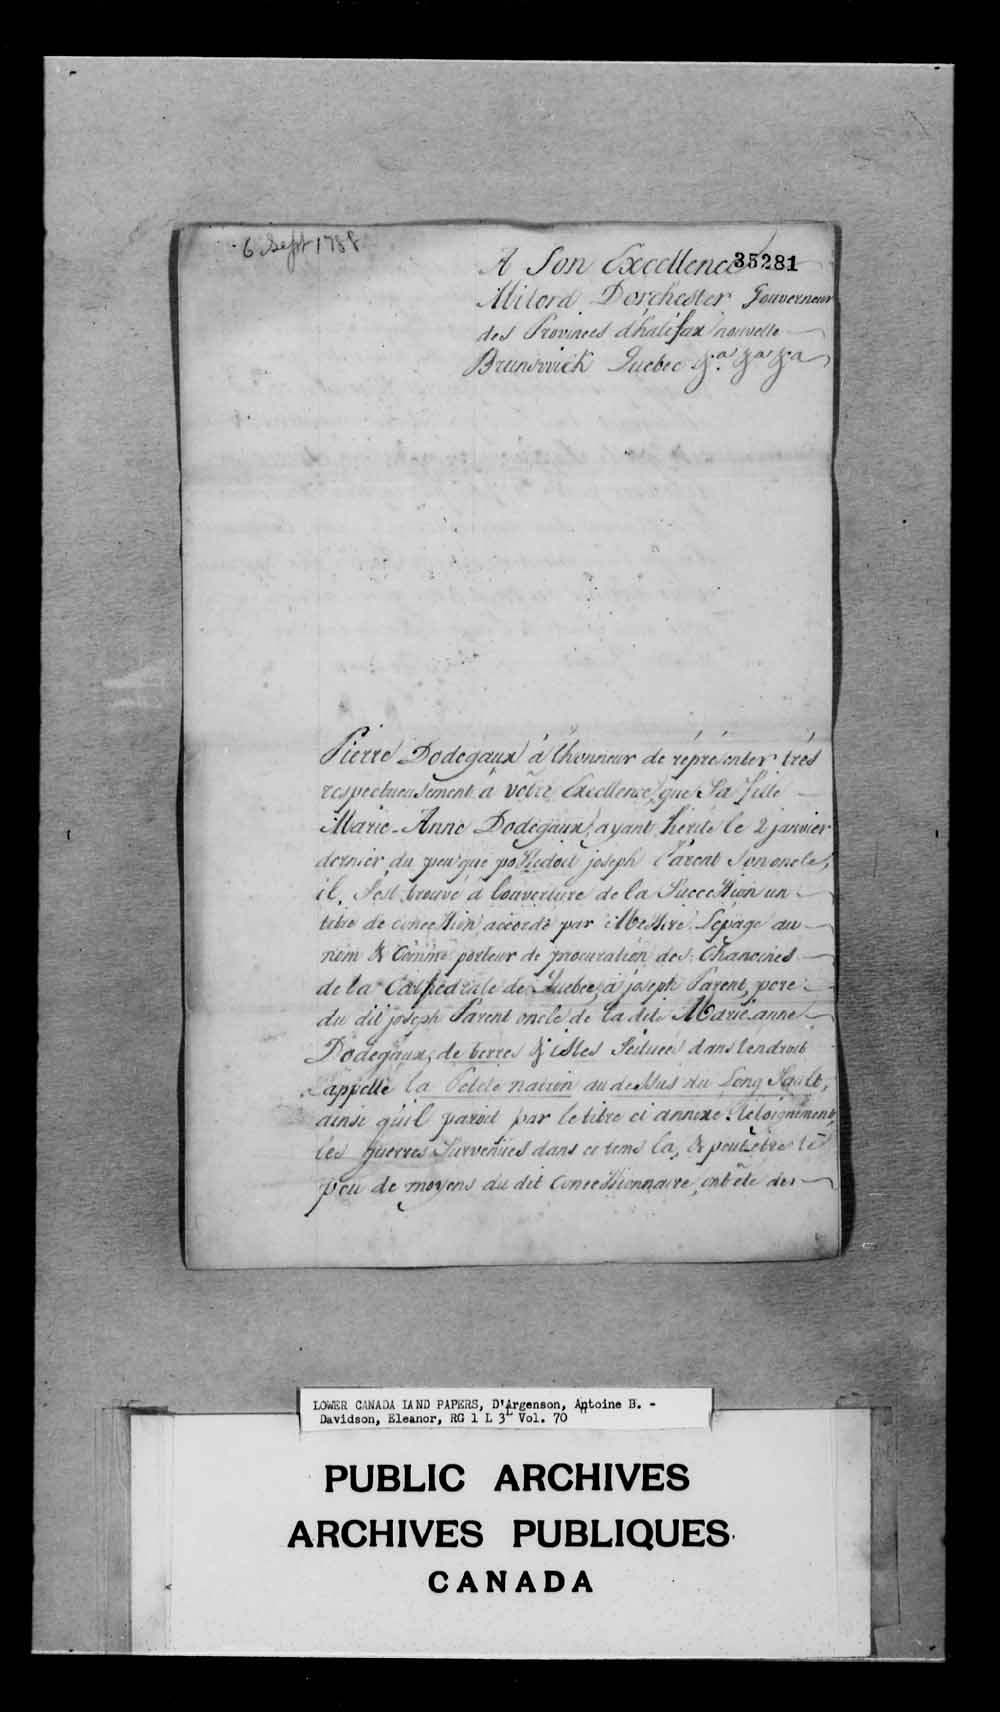 6 Sept 1788
35281
A Son Excellence
Milord Dorchester Gouverneur
des Provinces d'halifax nouvelle
Brunswick Quebec &.a &a &a
Pierre Dodegaux à l'honneur de réprésenter très
respectueusement à vôtre Excellence, que Sa fille
Marie-Anne Dodegaux, ayant hérité le 2 janvier
dernier du peu que possedoit joseph Parent Son oncle,
il, S'est trouvé à louverture de la Succession un
titre de concession accordé par Messire Lepage au
nom & Comme porteur de procuration des Chanoines
de la Cathédrale de Quebec, à joseph Parent, pere
du dit joseph Parent oncle de la dite Marie-anne
Dodegaux, de terres & isles Scituées dans lendroit
appellé la Petite nation au dessus du Long Sault,
ainsi quil paroit par le titre ci annexé. l'éloignement,
les guerres Survenües dans ce tems la, & peut être le
peu de moyens du dit Concessionnaire, ont été des
LOWER CANADA LAND PAPERS, D'Argenson, Antoine B. -
Davidson, Eleanor, RG 1 L 3L Vol. 70
PUBLIC ARCHIVES
ARCHIVES PUBLIQUES
CANADA